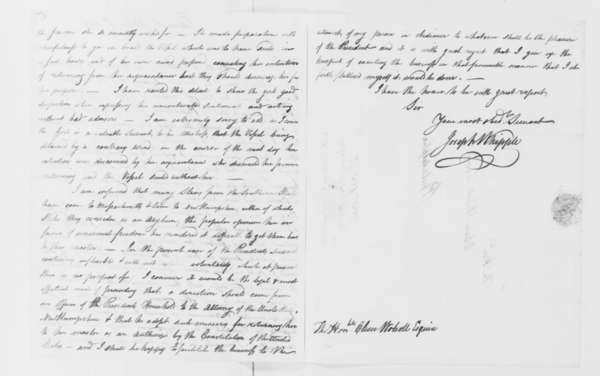 the favor she so recently
preparation with
cheerfulness to go on board the Vessel which was to have sailed in
a few hours and of her own accord proposed concealing her intention
of returning from her acquaintance lest they should discourage her from
her purpose. — I have recited this detail to show the girl's good
disposition when
and acting
without bad advisers — I am extremely sorry to add as I conceive
the girl is a valuable Servant to her Mistress that the Vessel being
detained by a contrary wind in the course of the next day her
intention was discovered by her acquaintance who dissuaded her from
returning and the Vessel sailed without her. —
I am informed that many Slaves from the Southern States
have come to Massachusetts & some to New Hampshire, either of which
States they consider as an asylum; the popular opinion here in
favor of universal freedom has rendered it difficult to get them back
to their masters. — In the present case if the President's servant
continues inflexible & will not
voluntarily which at present
there is no prospect of I conceive it would be the legal & most
effectual mode of proceeding that a direction should come from
an officer of the President's Household to the Attorney of the United States in
New Hampshire & that he adopt such measures for returning her
to her master as are authorized by the Constitution of the United
States — and I shall be happy to
the business to the
utmost of my power in obedience to whatever shall be the pleasure
of the President and it is with great regret that I give up the
prospect of executing the business in that favourable manner that I at
first
myself it would be done. —
I have the honor to be with great respect
Sir
Your most obedt. Servant
Joseph Whipple
The Honble Oliver Wolcott Esquire